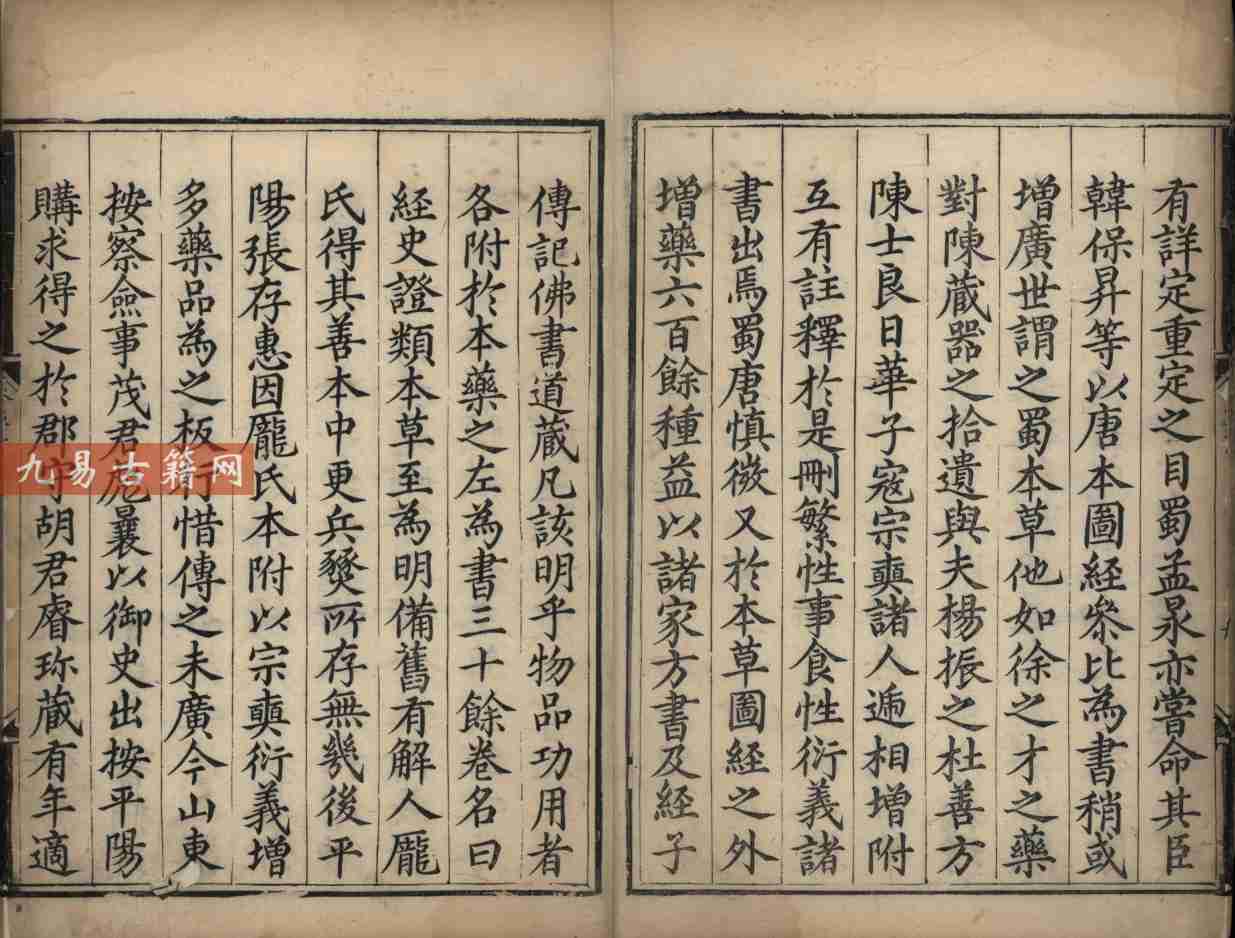 有詳定重定之目蜀孟昶亦嘗命其臣
韓保昇等以唐本圖經參比為書稍或
增廣世謂之蜀本草他如徐之才之藥
對陳藏器之拾遺與夫楊振之杜善方
陳士良日華子寇宗奭諸人遞相增附
互有註釋於是刪繁性事食性衍義諸
書出焉蜀唐慎微又於本草圖經之外
增藥六百餘種益以諸家方書及經子
傳記佛書道藏凡該明乎物品功用者
各附於本藥之左為書三十餘卷名曰
經史證類本草至為明備舊有解人龐
氏得其善本中更兵燹所存無幾後平
陽張存惠因龐氏本附以宗奭衍義增
多藥品為之板行惜傳之未廣今山東
按察僉事茂君彪曩以御史出按平陽
購求得之於郡守胡君睿珎藏有年適
九易古籍网